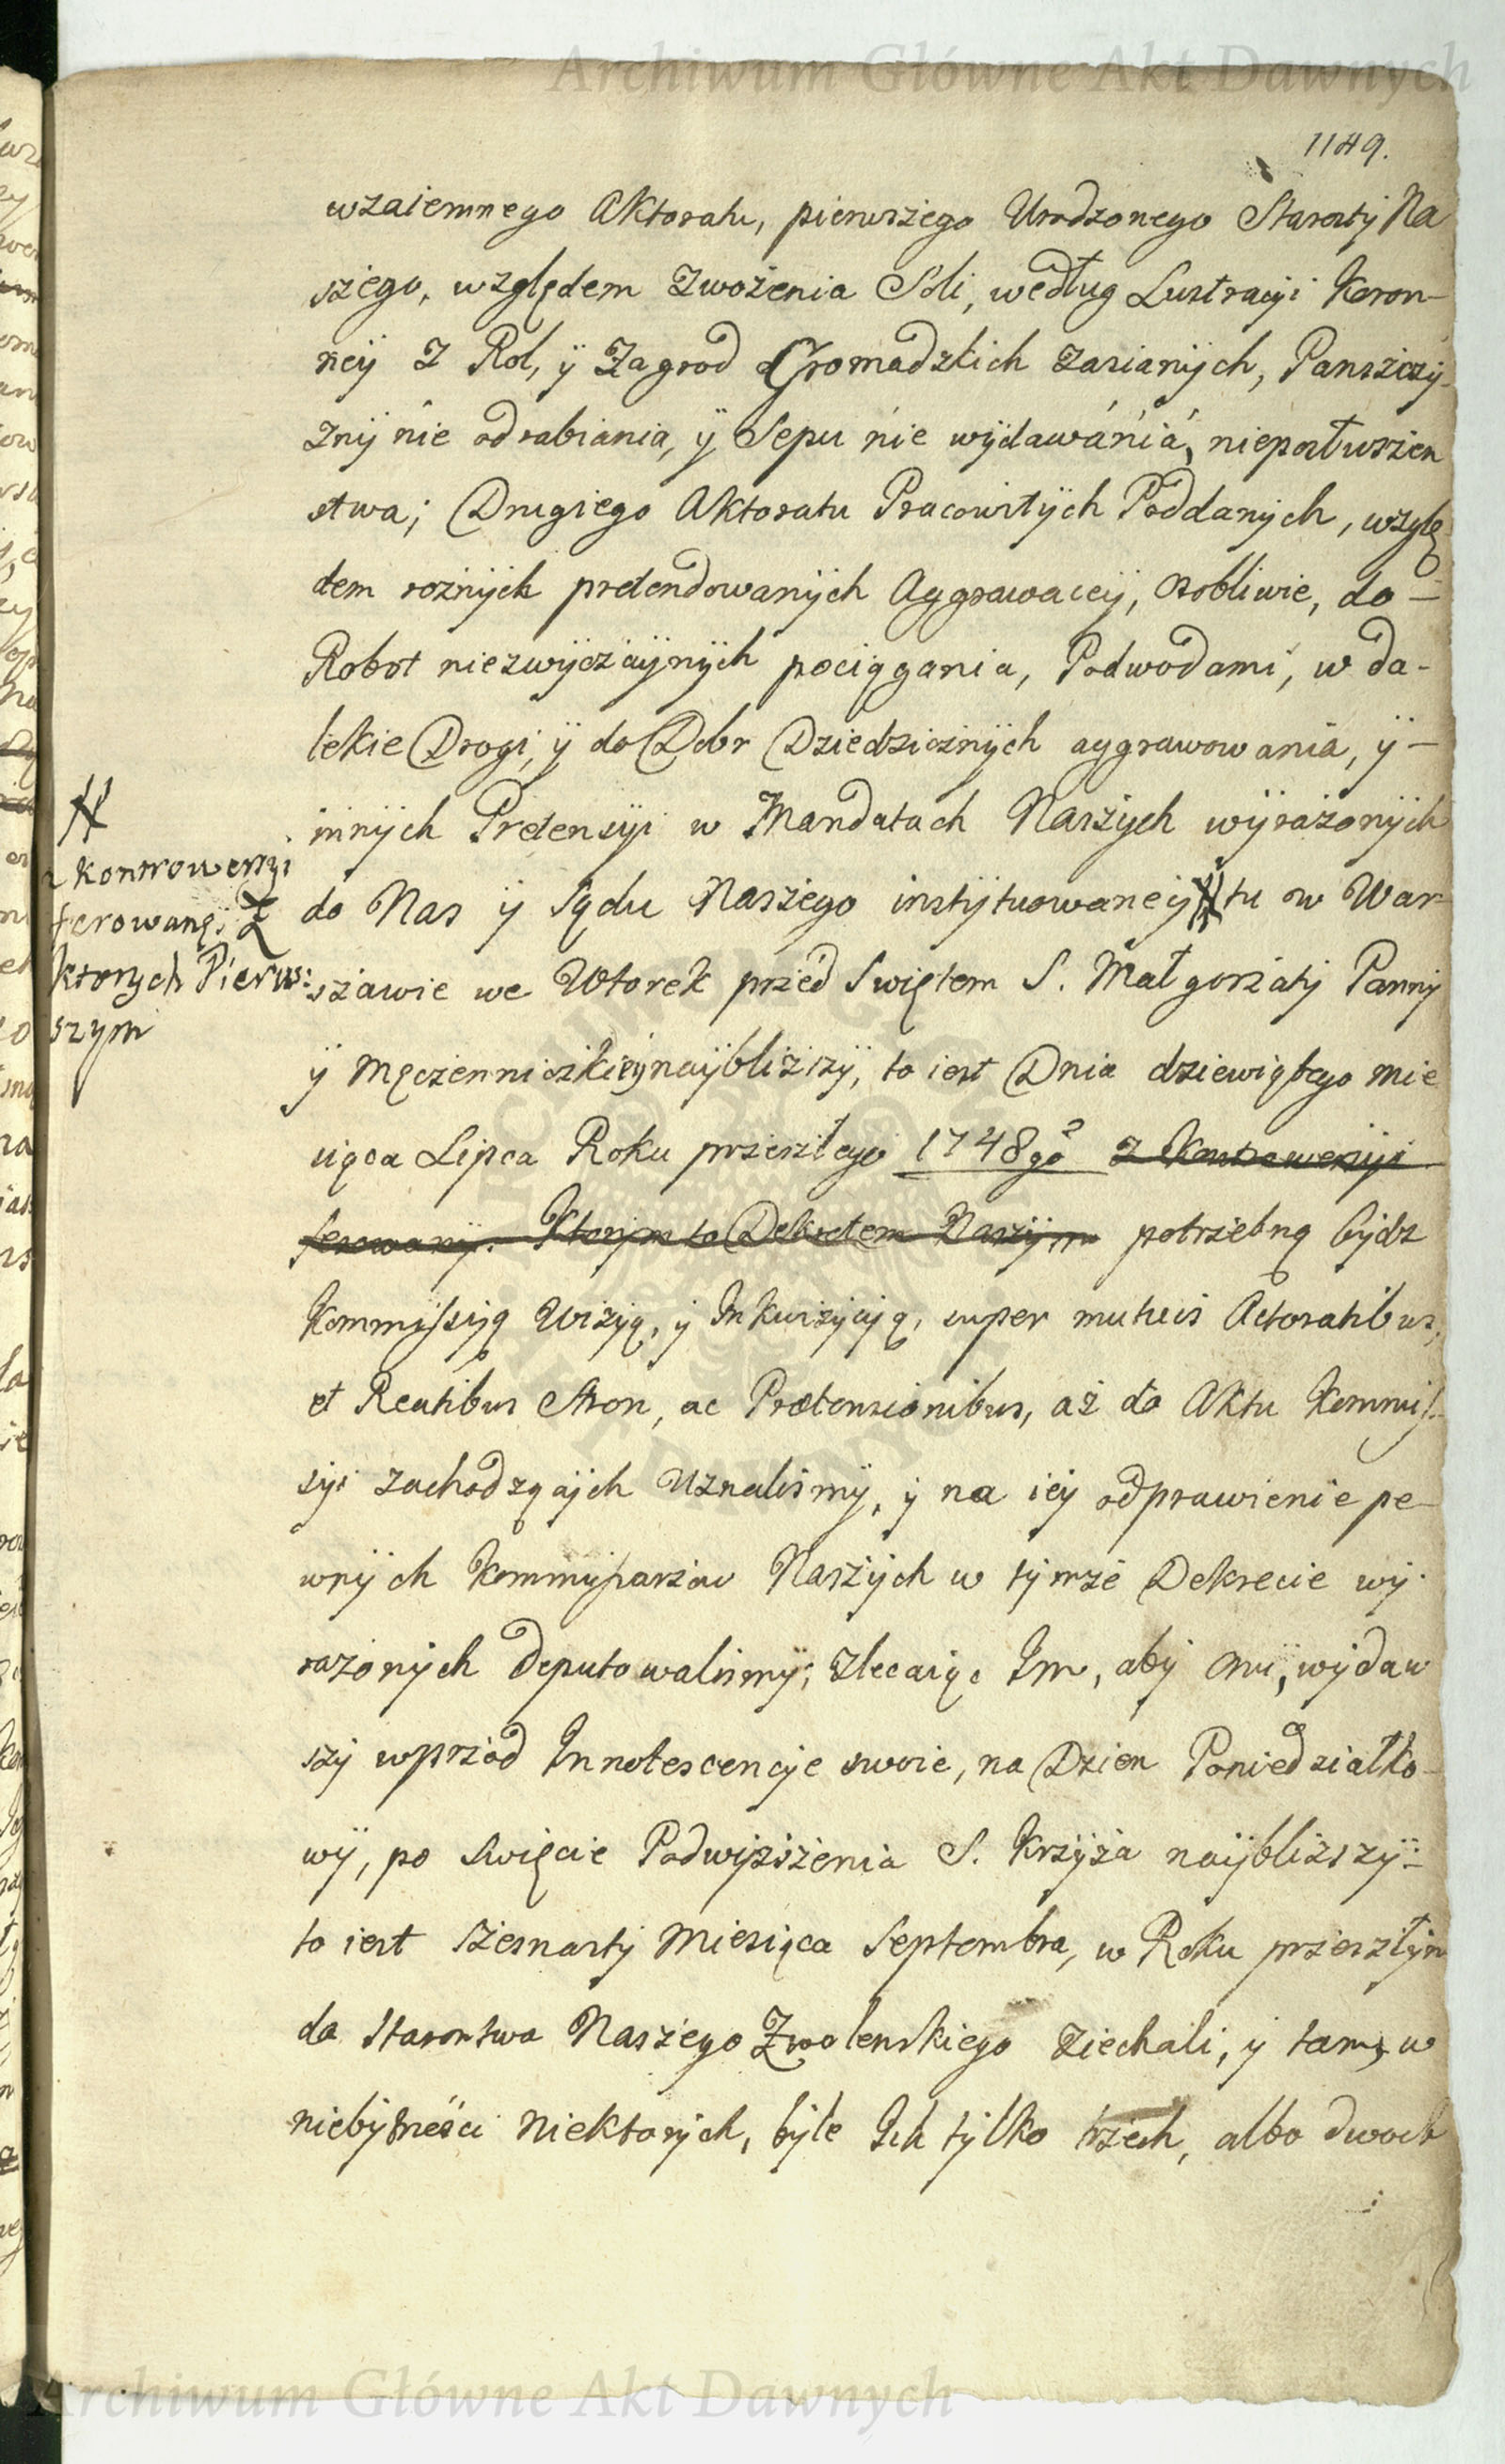 Archiwum Główne Akt Dawnych
1149.
wzaiemnego Aktoratu, pierwszego Urodzonego Starosty Na
szego, względem zwożenia Soli, według Lustracyi Koron-
ney z Rol, ÿ Zagrod Gromadzkich zasianych, Panszczy-
zny nie odrabiania, ÿ Sepu nie wydawánia, nieposłuszen
stwa; Drugiego Aktoratu Pracowitych Poddanych, wzglę
dem rożnych pretendowanych Aggrawacyi, osobliwie, do-
Robot niezwyczaynych pociągania, Podwodami, w da-
lekie Drogi, ÿ do Dobr Dziedzicznych aggrawowania, ÿ-
innych Pretensyi w Mandatach Naszych wyrażonych
do Nas ÿ Sądu Naszego instytuowaney # tu w War-
szawie we Wtorek przed Swiętem S. Małgorzaty Panny
ÿ Męczenniczki naybliższy, to iest Dnia dziewiątego mie
siąca Lipca Roku przeszłego 1748go z Kontrowersyi
ferowany. Ktorym to Dekretem Naszym potrzebną bydz
Kommissyą Wizyą, ÿ Inkwizycyą, super mutuis Actoratibus,
et Reatibus Stron, ac Prætensionibus, aż do Aktu Kommis-
syi zachodzących uznalismy, ÿ na iey odprawienie pe-
wnych Kommissarzow Naszych w tymże Dekrecie wy-
rażonych deputowalismy; zlecaiąc Im, aby oni, wydaw
szy wprzod Innotescencye swoie, na Dzien Poniedziałko-
wy, po Swięcie Podwyższenia S. Krzyża naybliższy-
to iest szesnasty Miesiąca Septembra, w Roku przeszłym
do Starostwa Naszego Zwolenskiego ziechali, ÿ tam, w
niebytności niektorych, byle Ich tylko trzech, albo dwoch
#
z kontrowersyi
ferowanęi Z
ktorych Pierw:
szym
Archiwum Główne Akt Dawnych